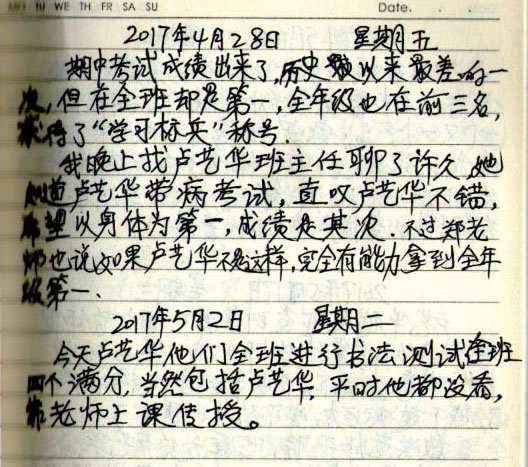 MU TU WE TH FR SA SU Date.
2017年4月28日 星期五
期中考试成绩出来了,历史以来最差的一
次,但在全班却是第一,全年级也在前三名,
获得了“学习标兵”称号.
我晚上找卢艺华班主任聊了许久,她
知道卢艺华带病考试,直叹卢艺华不错,
希望以身体为第一,成绩是其次.不过郑老
师也说如果卢艺华不是这样,完全有能力拿到全年
级第一.
2017年5月2日 星期二
今天卢艺华他们全班进行书法测试,全班
四个满分,当然包括卢艺华,平时他都没看,
靠老师上课传授。